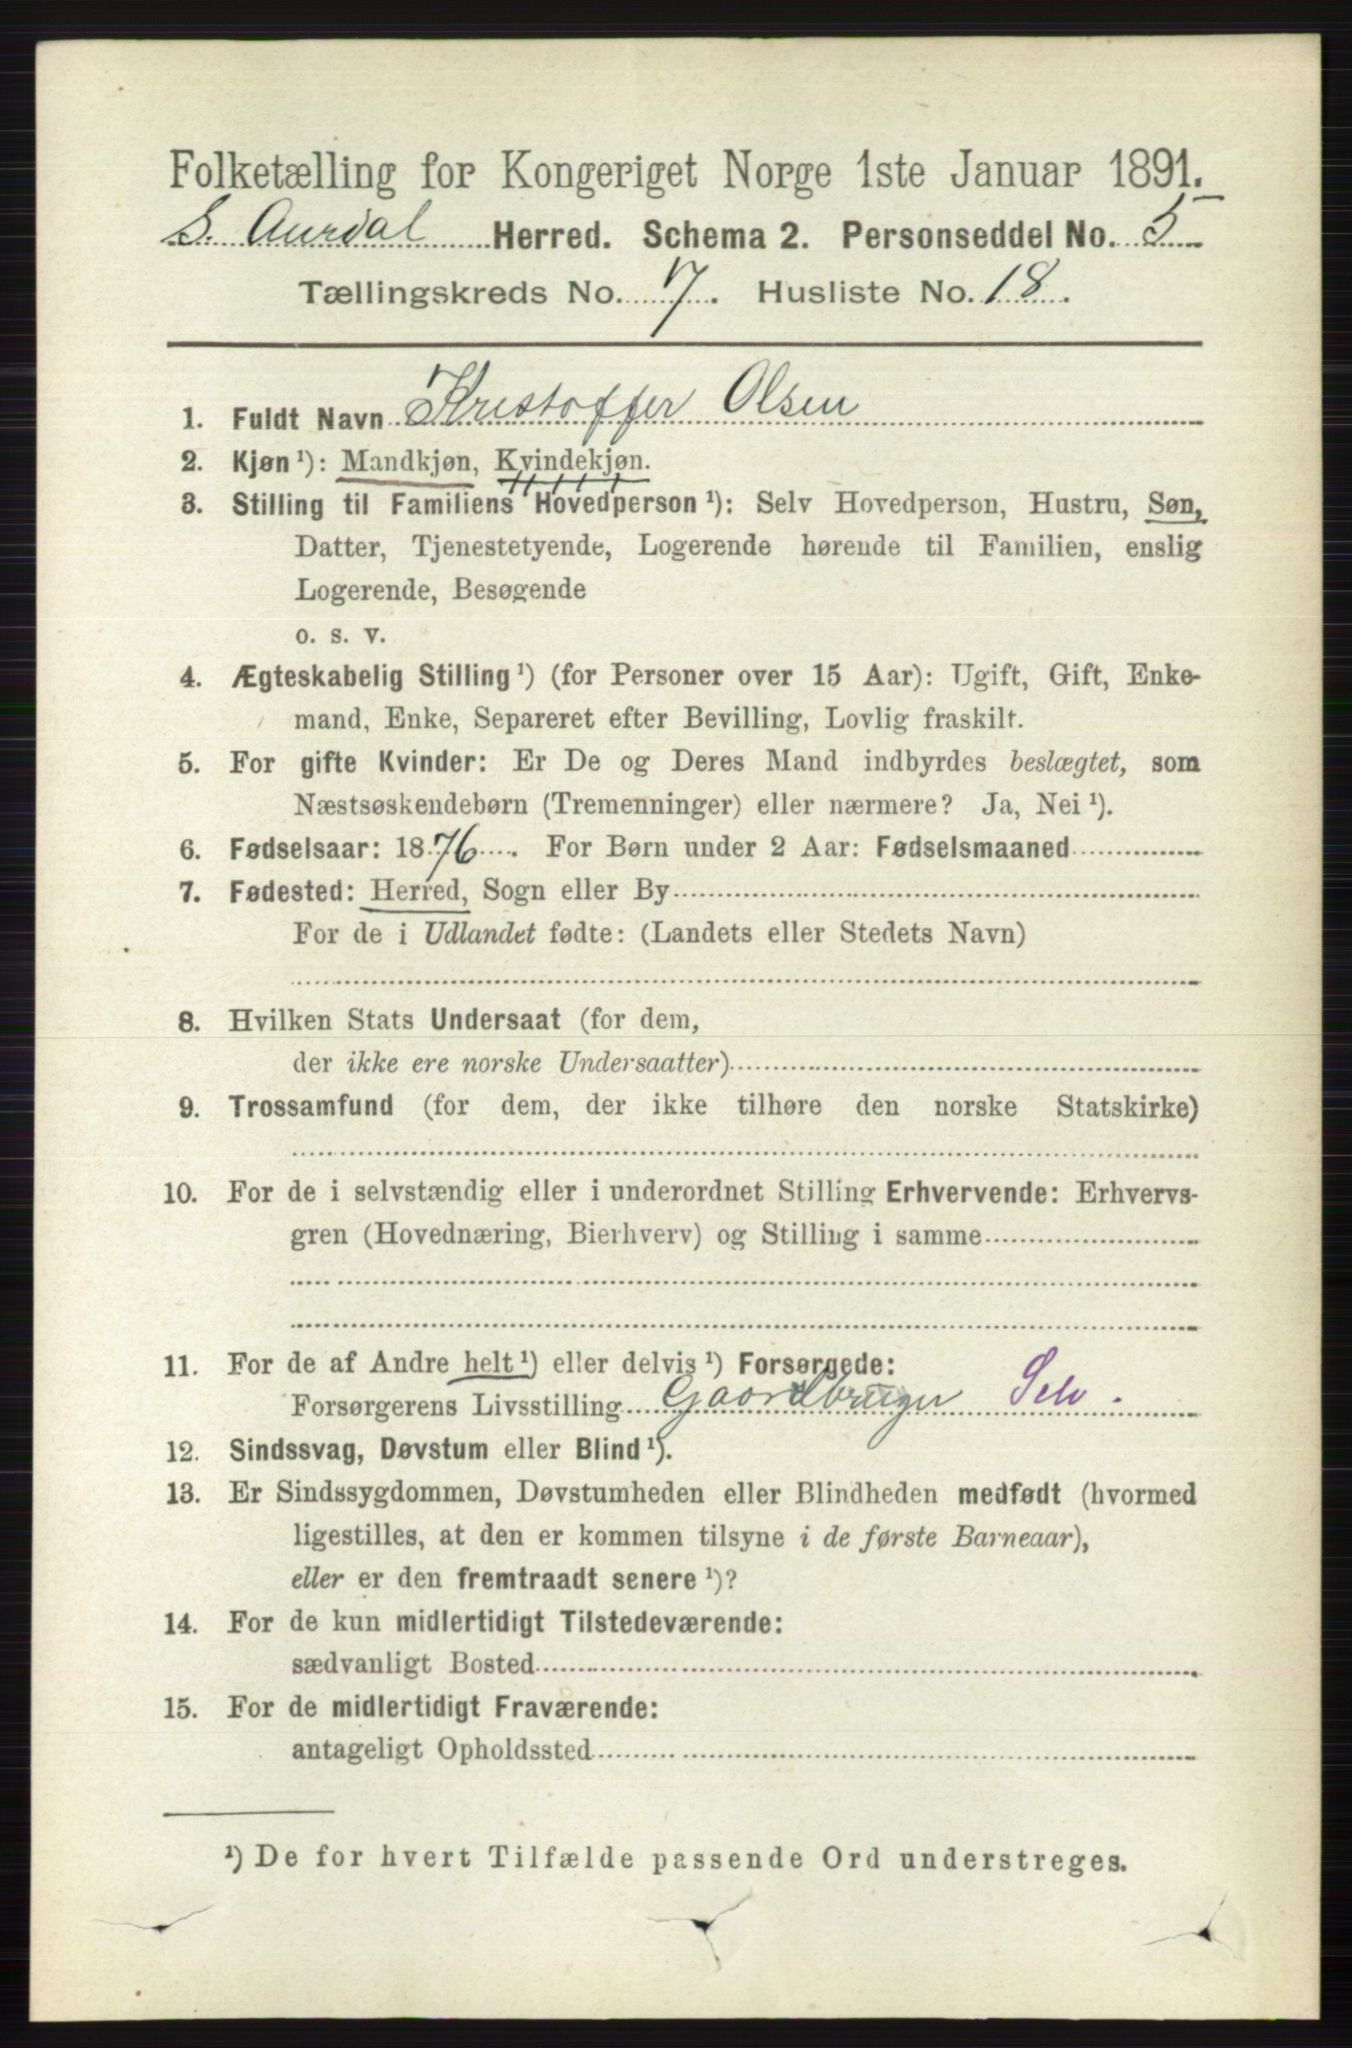 Folketælling for Kongeriget Norge 1ste Januar 1891.
S. Aurdal Herred. Schema 2. Personseddel No. 5
Tællingskreds No. 7. Husliste No. 18.
1. Fuldt Navn Kristoffer Olsen
2. Kjøn ¹): Mandkjøn, Kvindekjøn.
3. Stilling til Familiens Hovedperson ¹): Selv Hovedperson, Hustru, Søn,
Datter, Tjenestetyende, Logerende hørende til Familien, enslig
Logerende, Besøgende
o. s. v.
4. Ægteskabelig Stilling ¹) (for Personer over 15 Aar): Ugift, Gift, Enke-
mand, Enke, Separeret efter Bevilling, Lovlig fraskilt.
5. For gifte Kvinder: Er De og Deres Mand indbyrdes beslægtet, som
Næstsøskendebørn (Tremenninger) eller nærmere? Ja, Nei ¹).
6. Fødselsaar: 1876. For Børn under 2 Aar: Fødselsmaaned
7. Fødested: Herred, Sogn eller By
For de i Udlandet fødte: (Landets eller Stedets Navn)
8. Hvilken Stats Undersaat (for dem,
der ikke ere norske Undersaatter)
9. Trossamfund (for dem, der ikke tilhøre den norske Statskirke)
10. For de i selvstændig eller i underordnet Stilling Erhvervende: Erhvervs-
gren (Hovednæring, Bierhverv) og Stilling i samme
11. For de af Andre helt ¹) eller delvis ¹) Forsørgede:
Forsørgerens Livsstilling Gaardbruger Selv.
12. Sindssvag, Døvstum eller Blind ¹).
13. Er Sindssygdommen, Døvstumheden eller Blindheden medfødt (hvormed
ligestilles, at den er kommen tilsyne i de første Barneaar),
eller er den fremtraadt senere ¹)?
14. For de kun midlertidigt Tilstedeværende:
sædvanligt Bosted
15. For de midlertidigt Fraværende:
antageligt Opholdssted
¹) De for hvert Tilfælde passende Ord understreges.